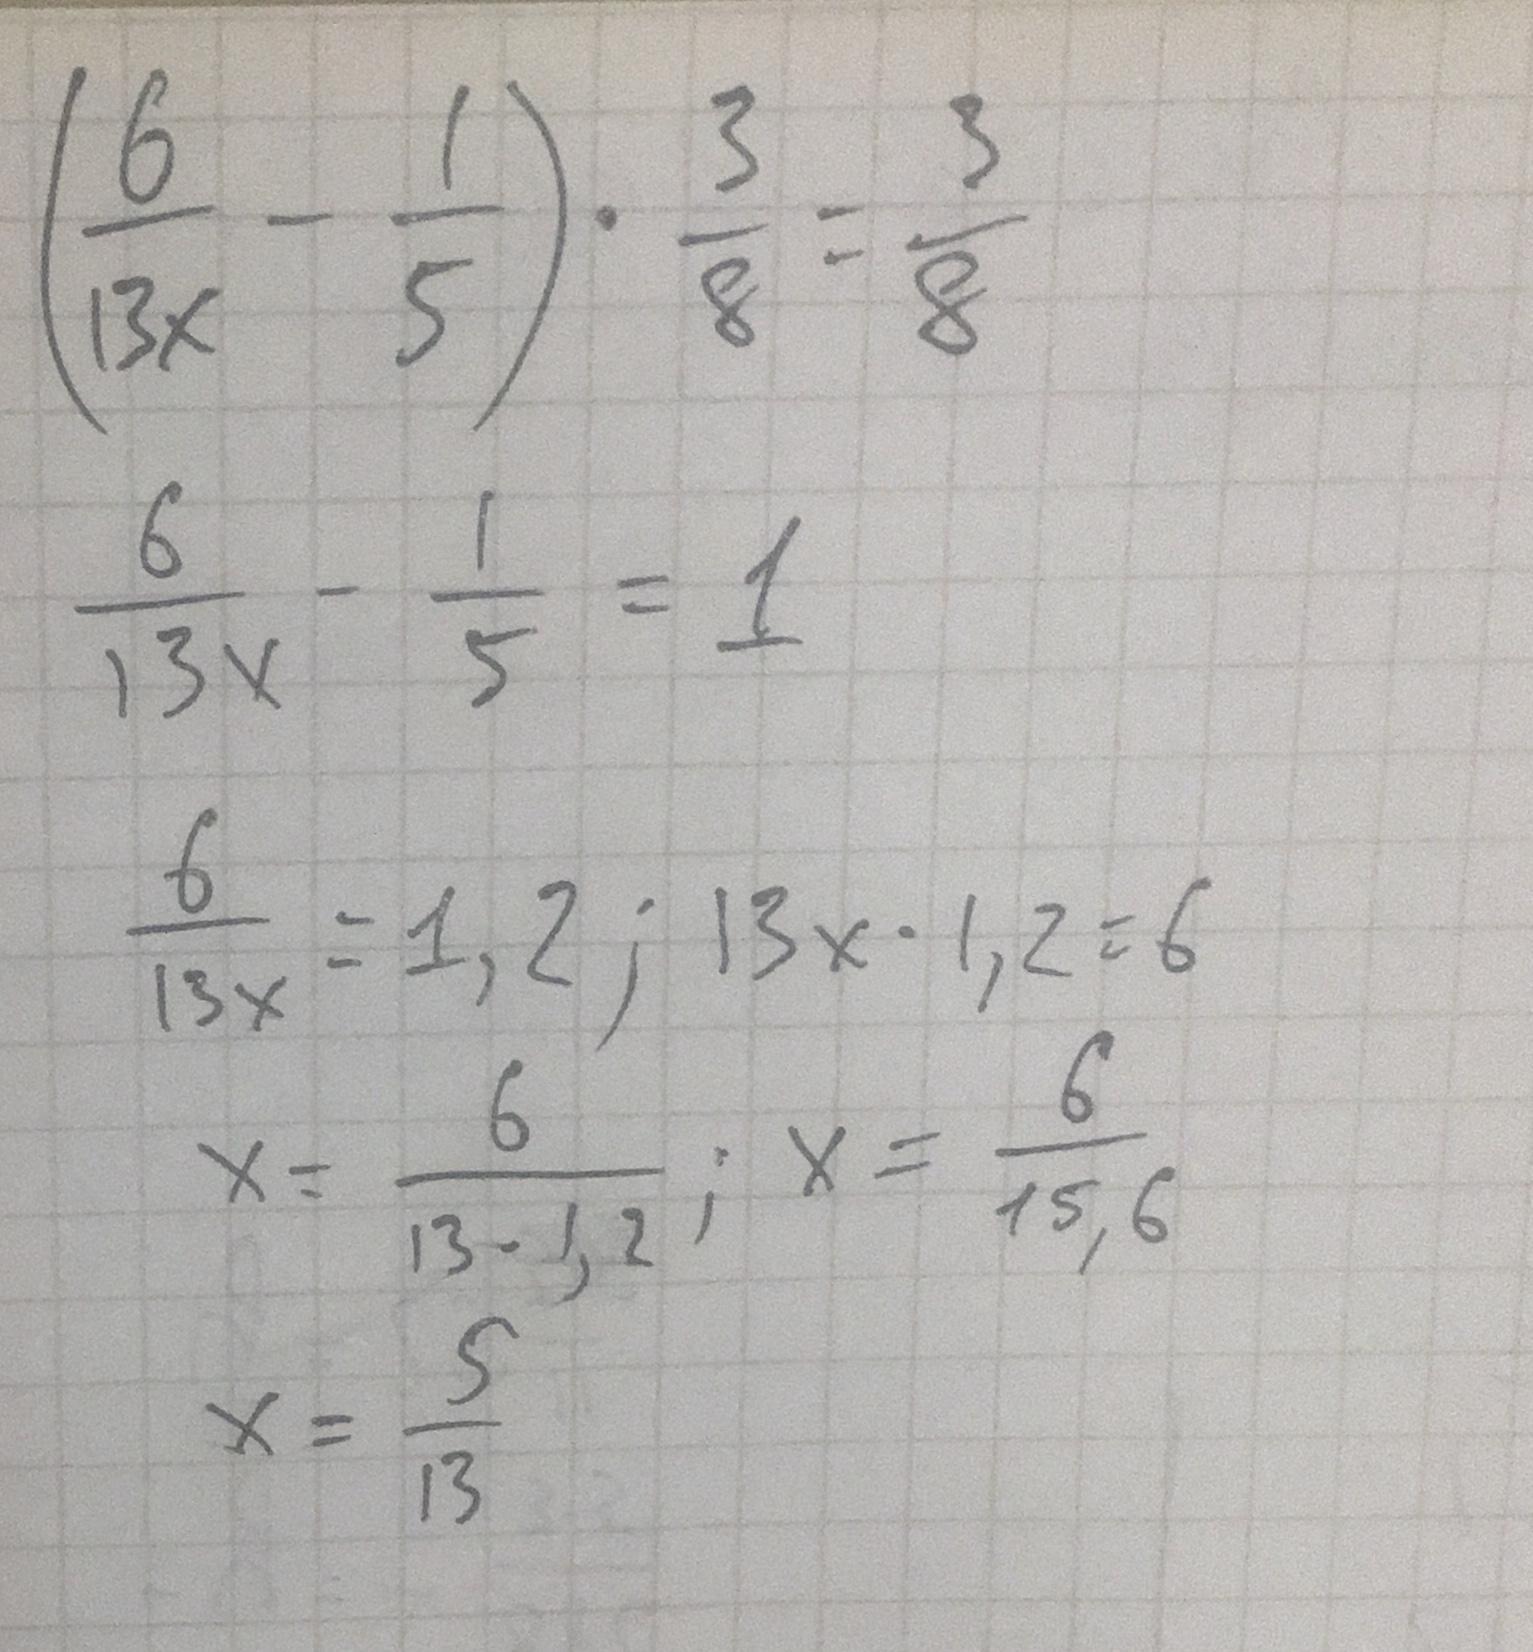 (6/13x - 1/5) · 3/8 = 3/8
6/13x - 1/5 = 1
6/13x = 1,2; 13x · 1,2 = 6
x = 6/13 · 1,2; x = 6/15,6
x = 5/13